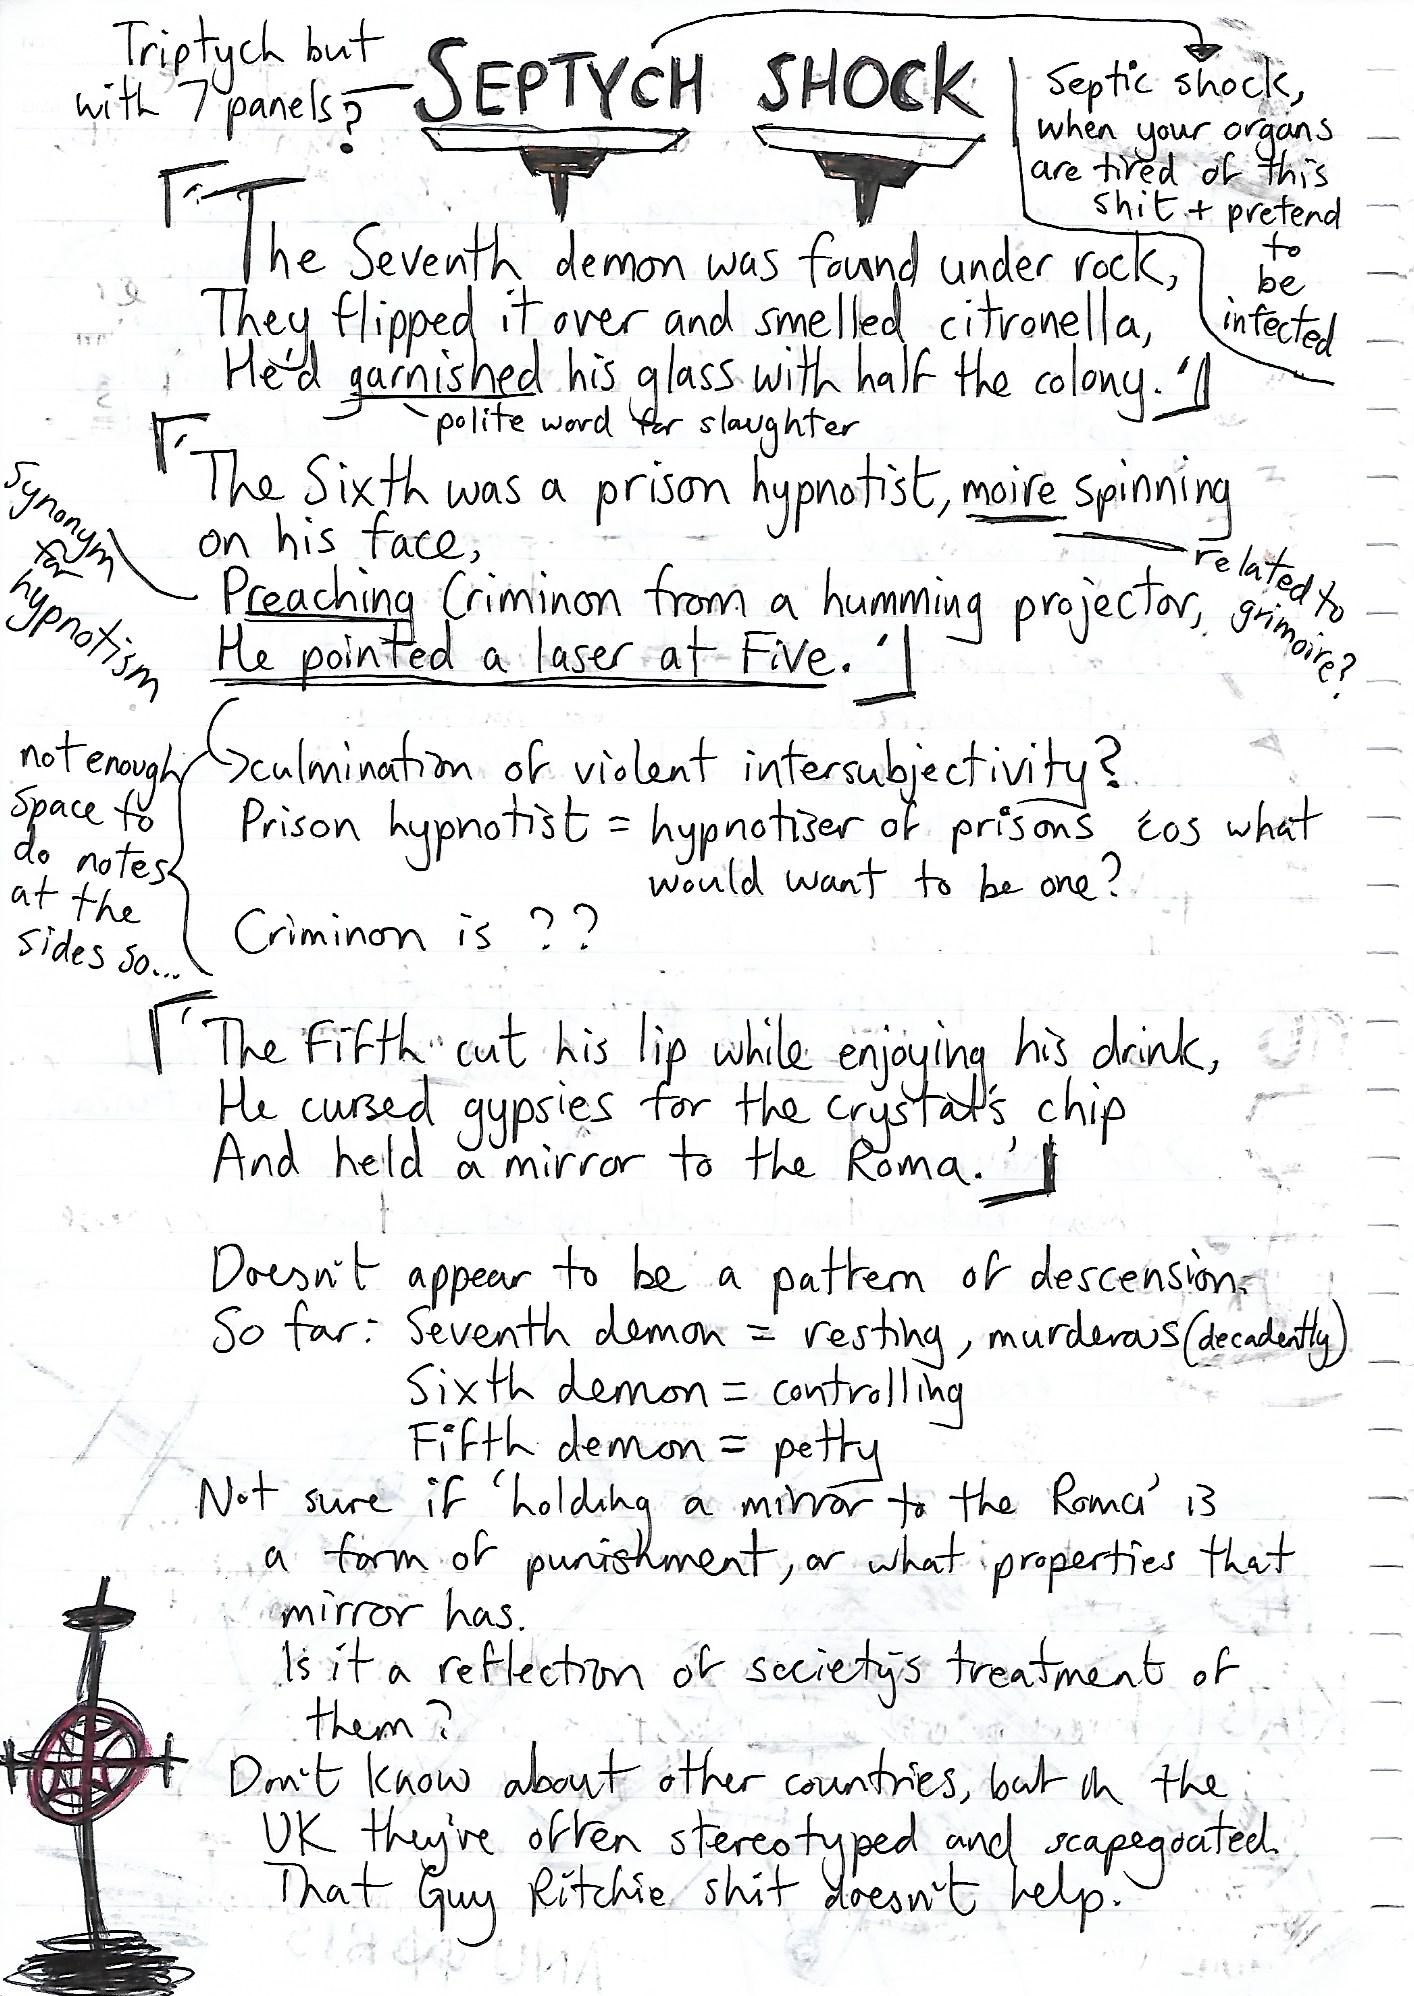 Triptych but
with 7 panels?
SEPTYCH SHOCK
Septic shock,
when your organs
are tired of this
shit + pretend
to
be
infected
「'The Seventh demon was found under rock,
They flipped it over and smelled citronella,
He'd garnished his glass with half the colony.'」
polite word for slaughter
「'The Sixth was a prison hypnotist, moire spinning
on his face,
Preaching Criminon from a humming projector,
He pointed a laser at Five.'」
synonym
for
hypnotism
related to
grimoire?
not enough
space to
do notes
at the
sides so...
culmination of violent intersubjectivity?
Prison hypnotist = hypnotiser of prisons cos what
would want to be one?
Criminon is ??
「'The Fifth cut his lip while enjoying his drink,
He cursed gypsies for the crystal's chip
And held a mirror to the Roma.'」
Doesn't appear to be a pattern of descension.
So far: Seventh demon = resting, murderous (decadently)
Sixth demon = controlling
Fifth demon = petty
Not sure if 'holding a mirror to the Roma' is
a form of punishment, or what properties that
mirror has.
Is it a reflection of society's treatment of
them?
Don't know about other countries, but in the
UK they're often stereotyped and scapegoated.
That Guy Ritchie shit doesn't help.